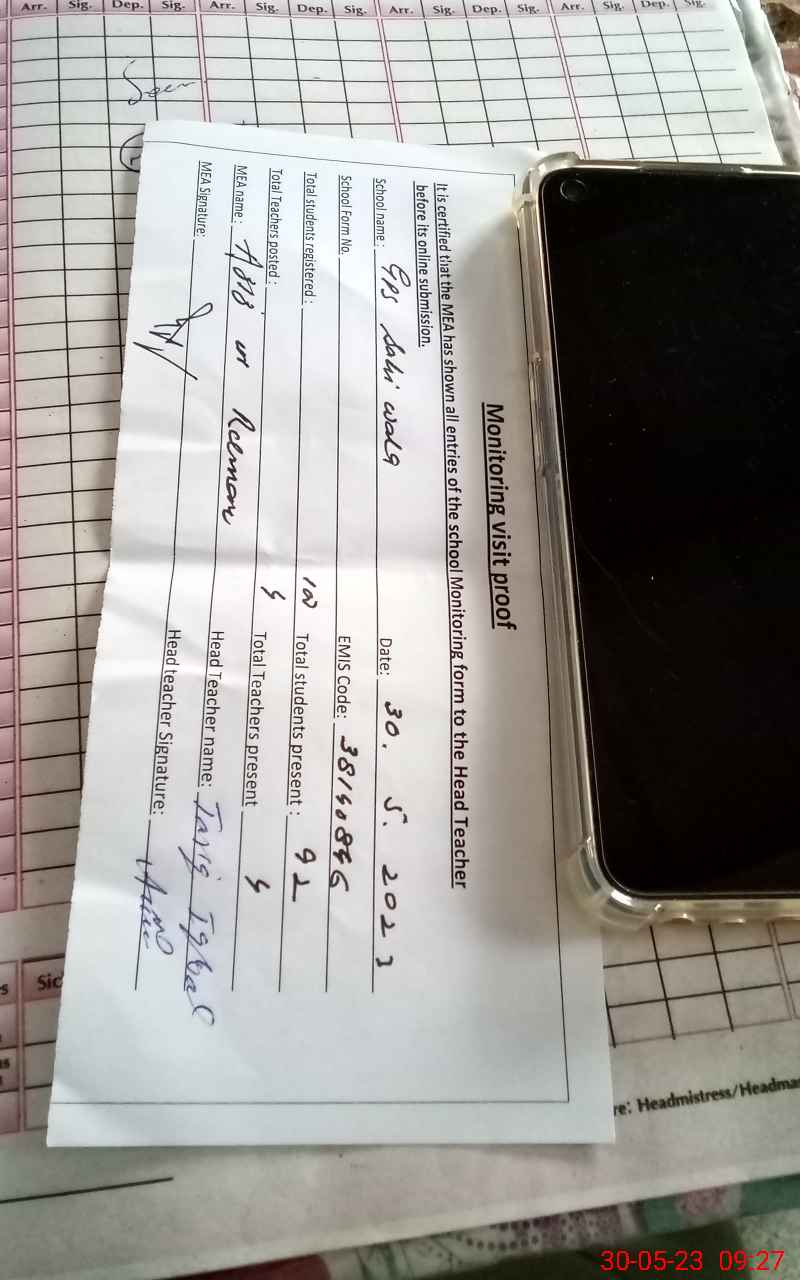 Arr. Sig. Dep. Sig. Arr. Sig. Dep. Sig. Arr. Sig. Dep. Sig. Arr. Sig. Dep. Sig.
Seen
Monitoring visit proof
It is certified that the MEA has shown all entries of the school Monitoring form to the Head Teacher
before its online submission.
School name: GPS Sahi wala Date: 30. 5. 2023
School Form No. EMIS Code:
Total students registered: 100 Total students present: 92
Total Teachers posted: 4 Total Teachers present 4
MEA name: ur Rehman Head Teacher name: Tariq Iqbal
MEA Signature: Head teacher Signature:
Sic
re: Headmistress/Headma
30-05-23 09:27